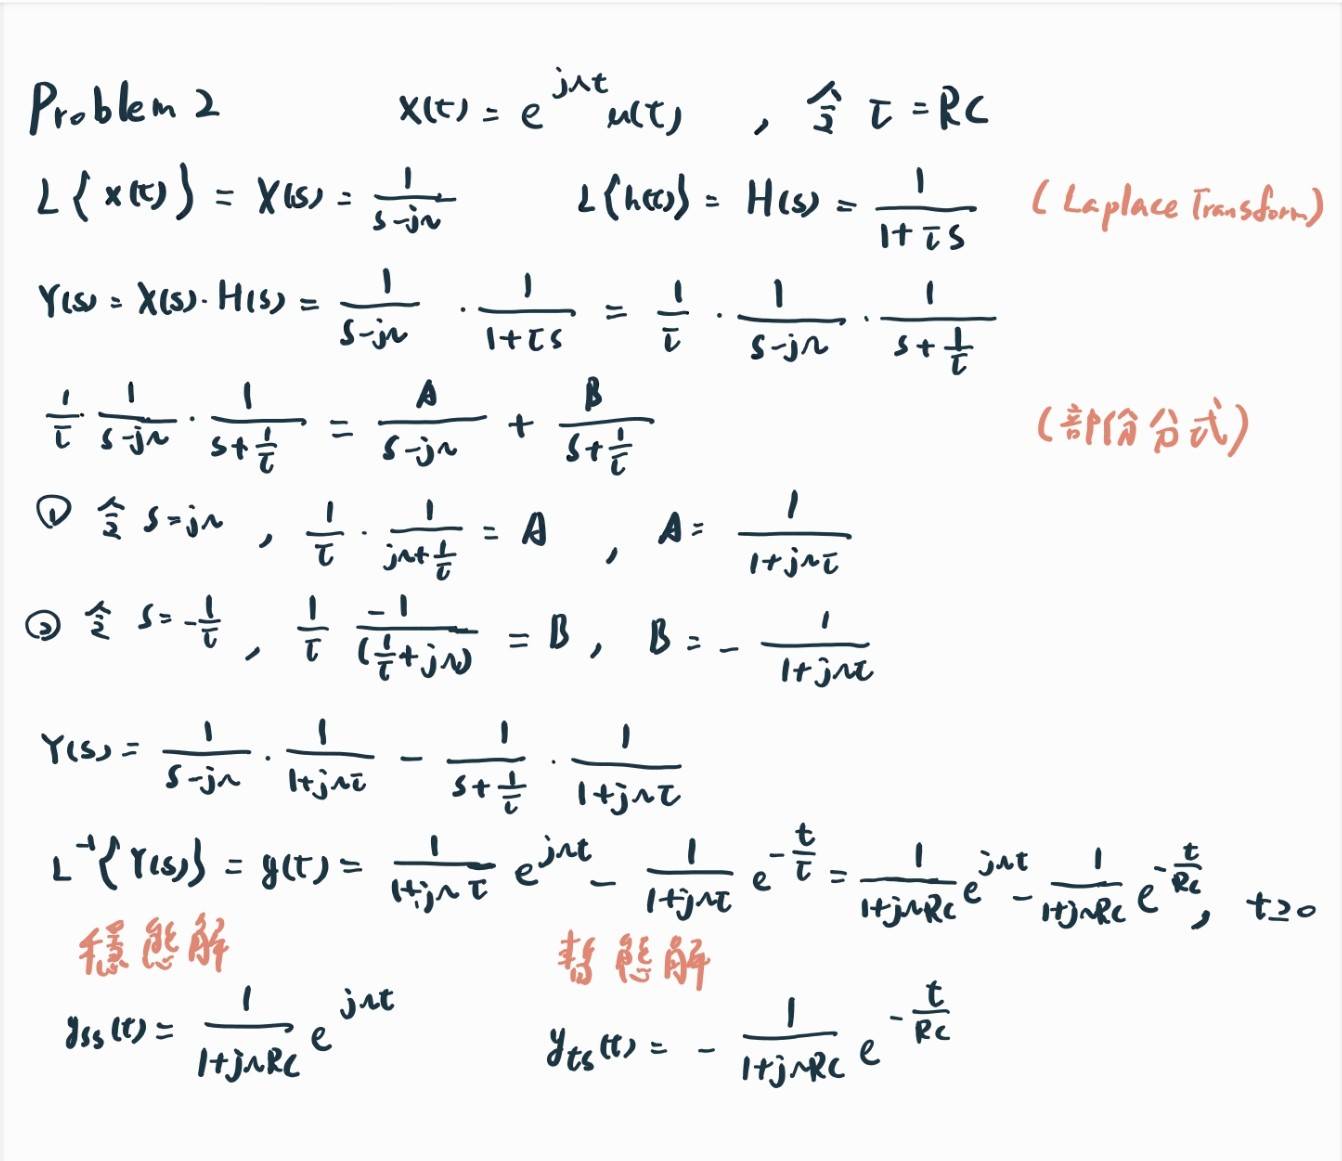 Problem 2 x(t) = e^{jΩt} u(t) , 令 τ = RC
L{x(t)} = X(s) = \frac{1}{s-jΩ} L{h(t)} = H(s) = \frac{1}{1+τs} (Laplace Transform)
Y(s) = X(s)·H(s) = \frac{1}{s-jΩ} · \frac{1}{1+τs} = \frac{1}{τ} · \frac{1}{s-jΩ} · \frac{1}{s+\frac{1}{τ}}
\frac{1}{τ} · \frac{1}{s-jΩ} · \frac{1}{s+\frac{1}{τ}} = \frac{A}{s-jΩ} + \frac{B}{s+\frac{1}{τ}} (部份分式)
① 令 s=jΩ , \frac{1}{τ} · \frac{1}{jΩ+\frac{1}{τ}} = A , A = \frac{1}{1+jΩτ}
② 令 s=-\frac{1}{τ} , \frac{1}{τ} \frac{-1}{(\frac{1}{τ}+jΩ)} = B , B = -\frac{1}{1+jΩτ}
Y(s) = \frac{1}{s-jΩ} · \frac{1}{1+jΩτ} - \frac{1}{s+\frac{1}{τ}} · \frac{1}{1+jΩτ}
L^{-1}{Y(s)} = y(t) = \frac{1}{1+jΩτ} e^{jΩt} - \frac{1}{1+jΩτ} e^{-\frac{t}{τ}} = \frac{1}{1+jΩRC} e^{jΩt} - \frac{1}{1+jΩRC} e^{-\frac{t}{RC}} , t≥0
穩態解 暫態解
y_{ss}(t) = \frac{1}{1+jΩRC} e^{jΩt} y_{ts}(t) = -\frac{1}{1+jΩRC} e^{-\frac{t}{RC}}